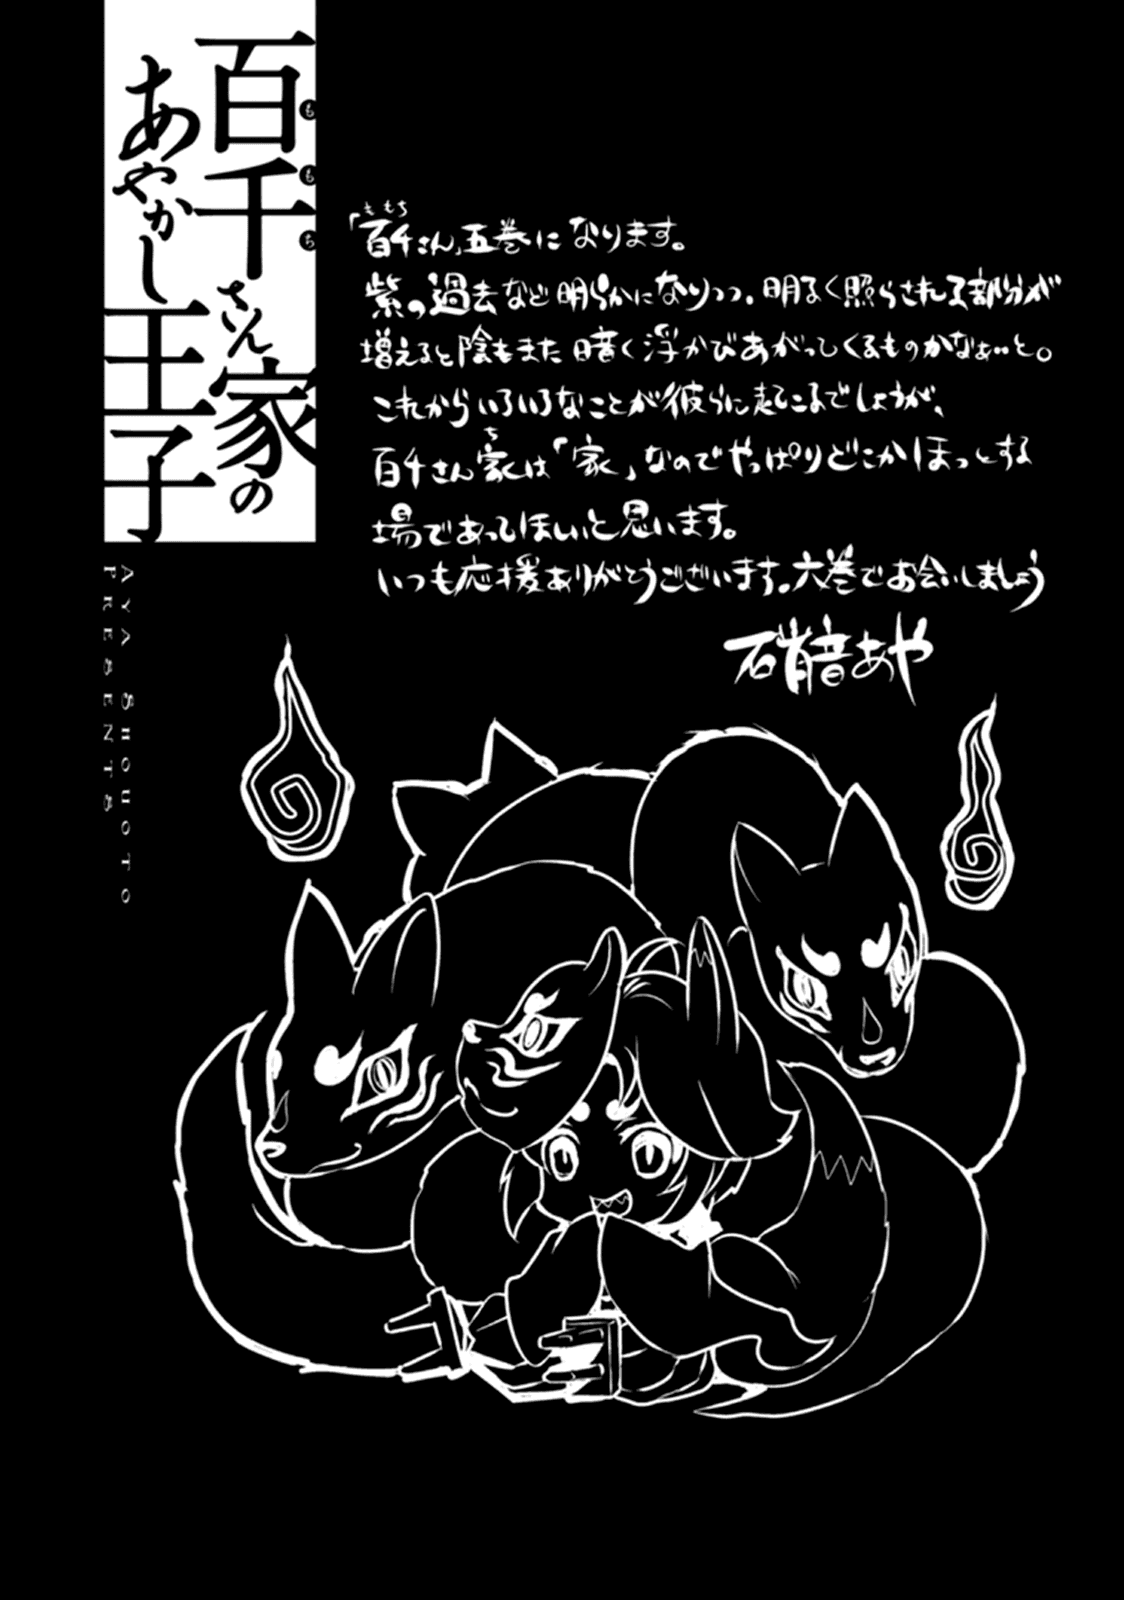 百千さん家の
ももち
あやかし王子
AYA SHOUOTO
PRESENTS
ももち
「百千さん」五巻になります。
紫の過去など明らかになりつつ、明るく照らされる部分が
増えると陰もまた暗く浮かびあがってくるものかなぁ…と。
これからいろいろなことが彼らに起こるでしょうが、
ち
百千さん家は「家」なのでやっぱりどこかほっとする
場であってほしいと思います。
いつも応援ありがとうございます。六巻でお会いしましょう
硝音あや